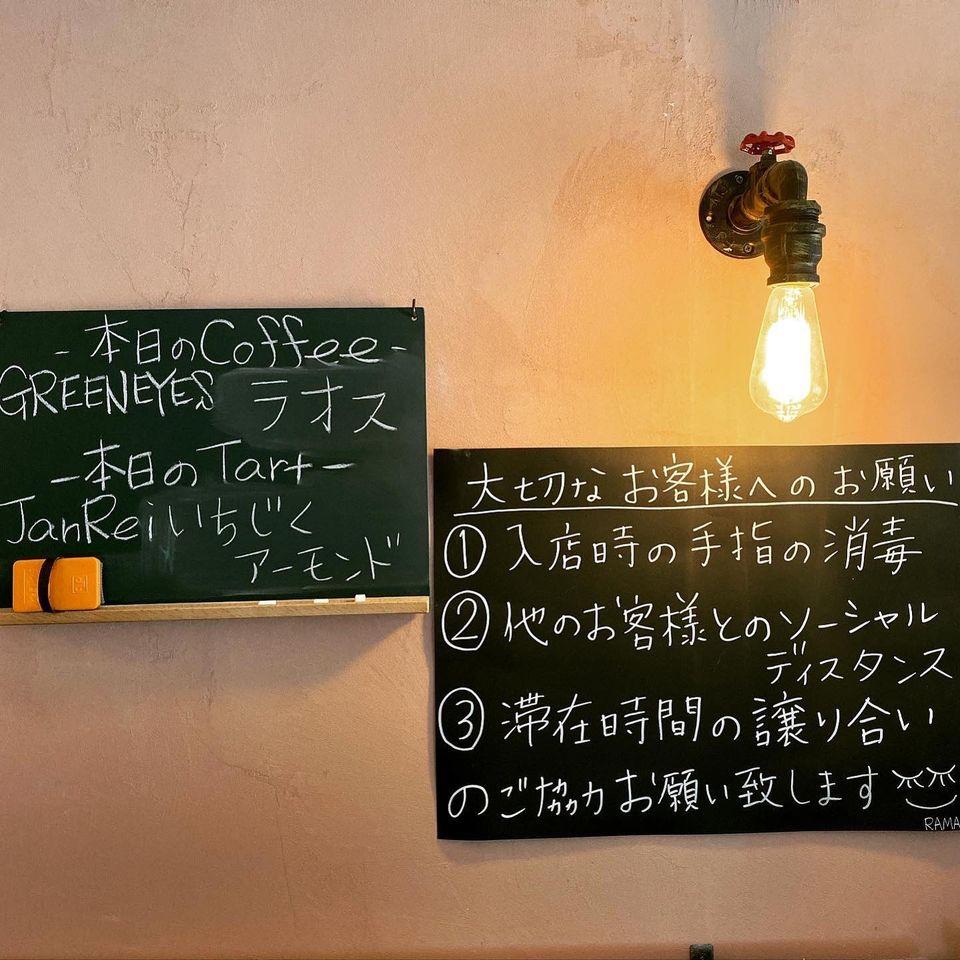 - 本日のCoffee -
GREENEYES ラオス
- 本日のTart -
JanRei いちじく
アーモンド
大切なお客様へのお願い
① 入店時の手指の消毒
② 他のお客様とのソーシャル
ディスタンス
③ 滞在時間の譲り合い
のご協力お願い致します
RAMA